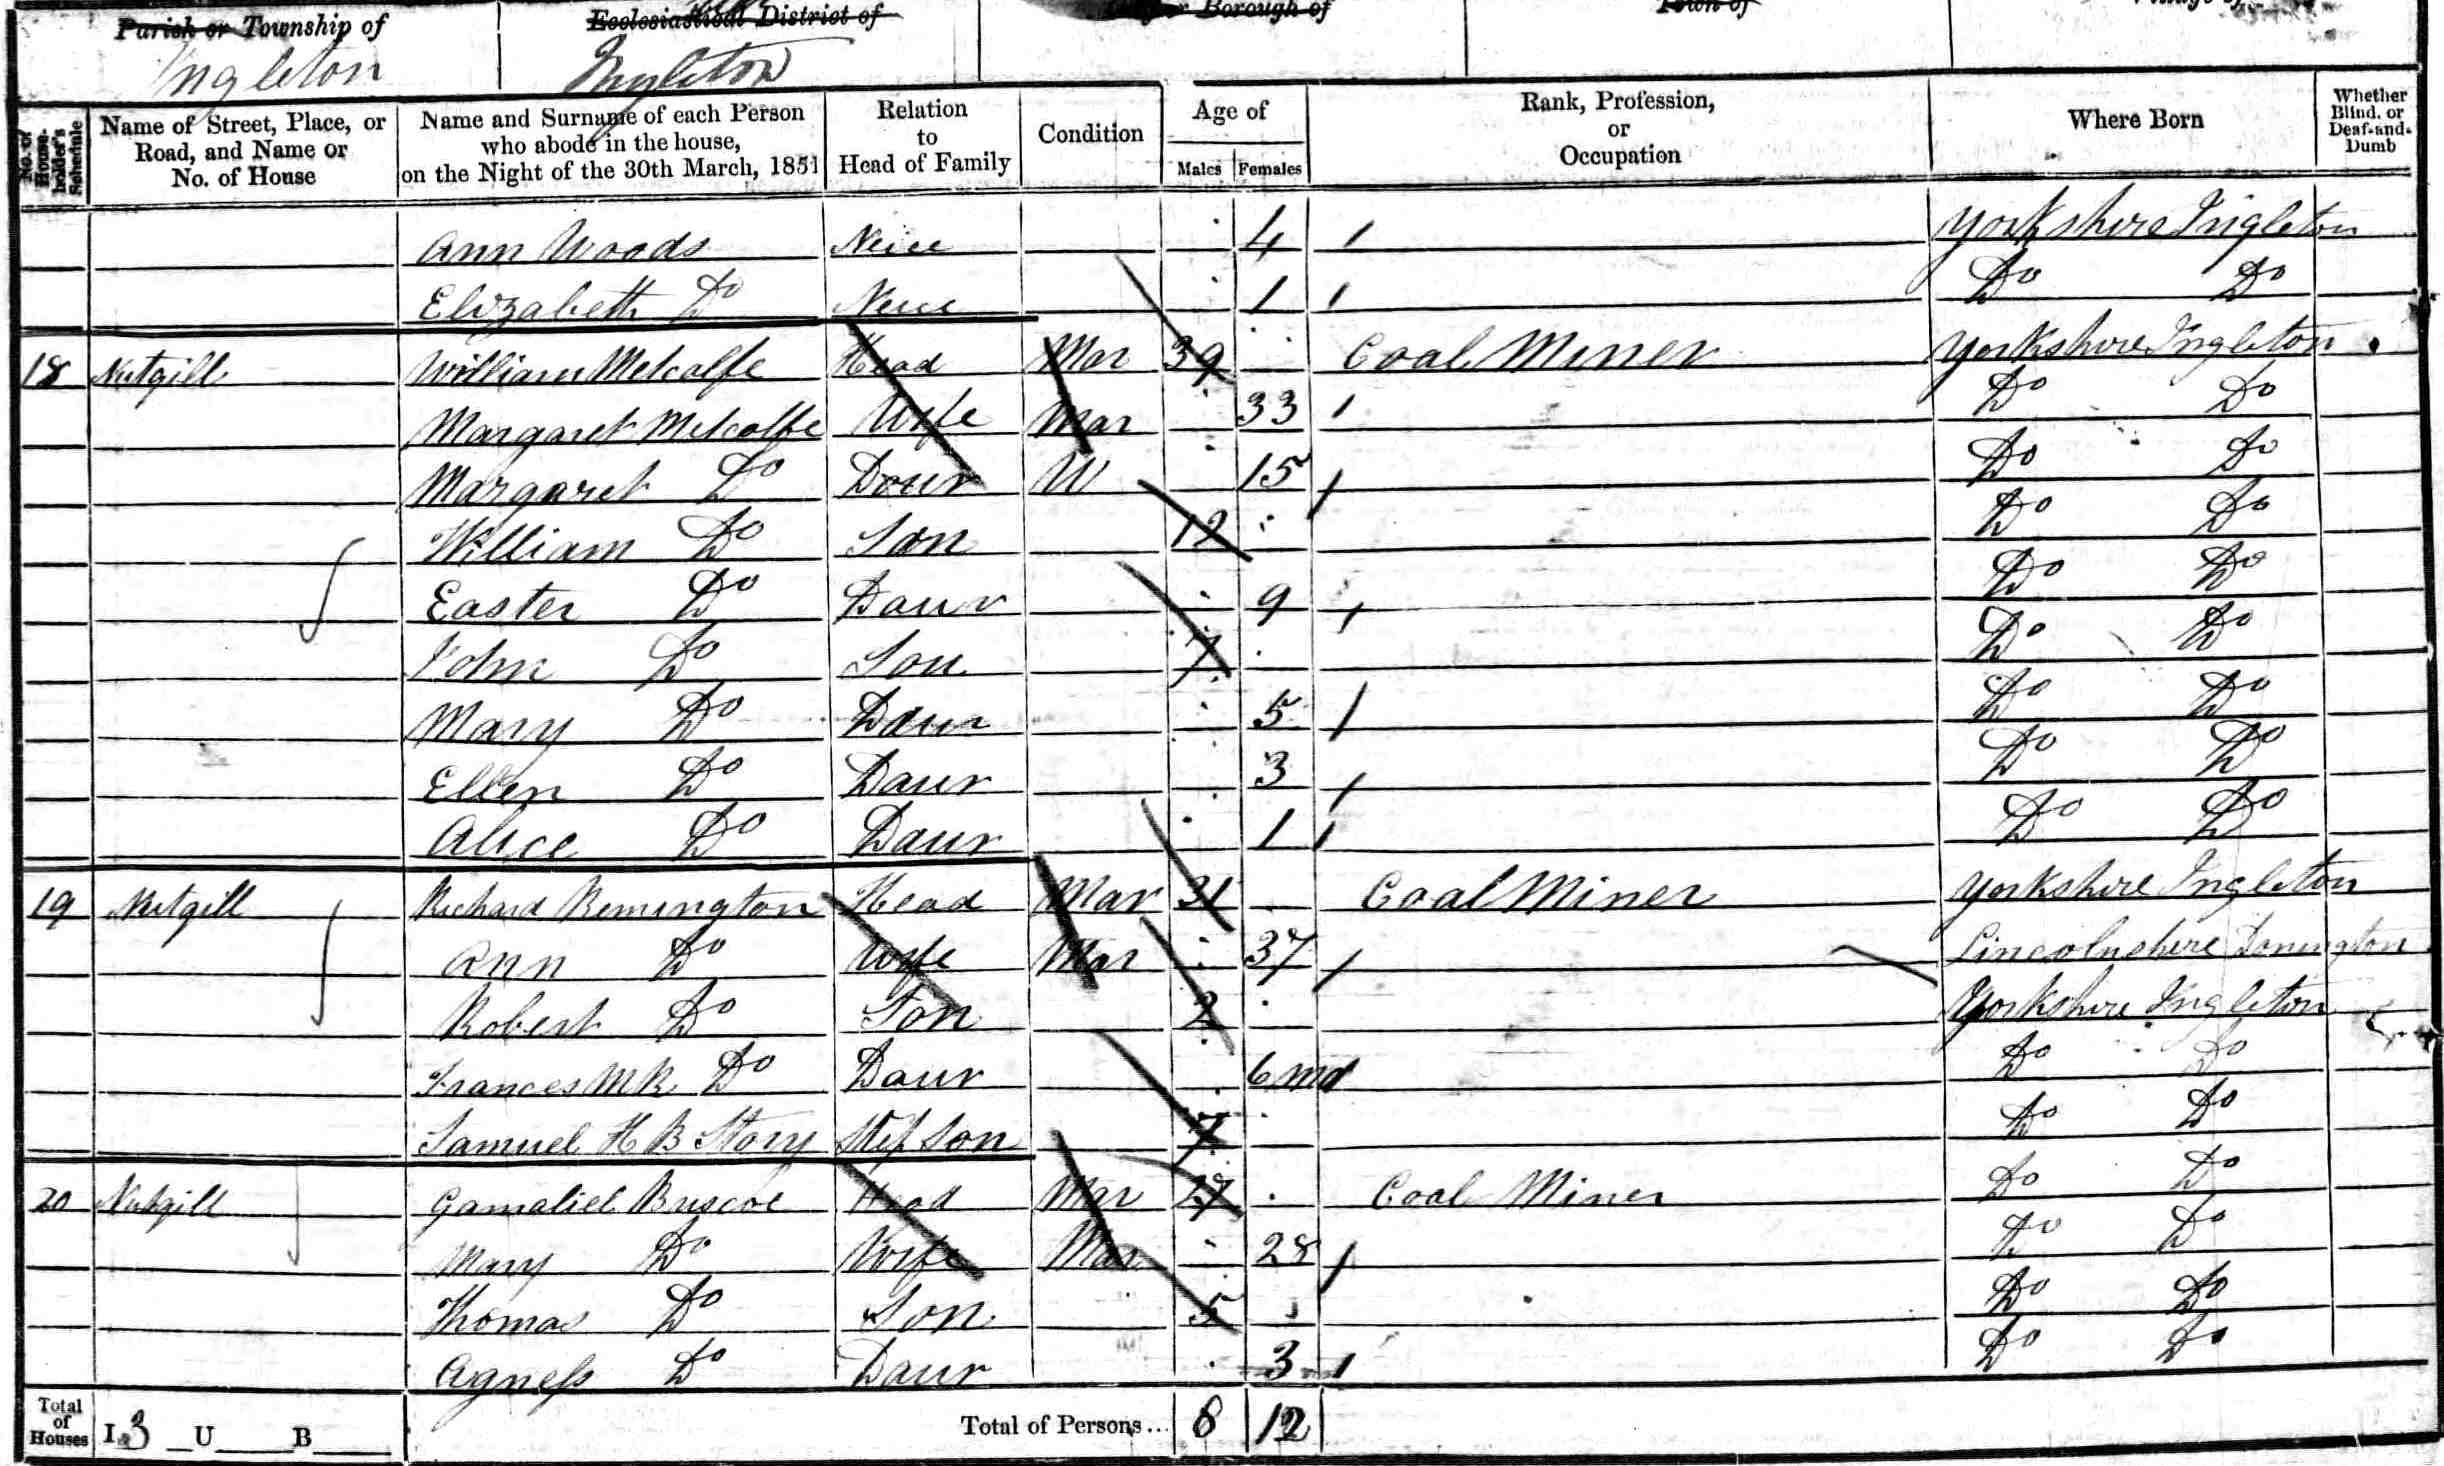 Parish or Township of
Ecclesiastical District of
Borough of
Town of
Ingleton
Ingleton
No. of House-holder's Schedule
Name of Street, Place, or Road, and Name or No. of House
Name and Surname of each Person who abode in the house, on the Night of the 30th March, 1851
Relation to Head of Family
Condition
Age of
Males
Females
Rank, Profession, or Occupation
Where Born
Whether Blind, or Deaf-and-Dumb
Ann Woods Neice 4 Yorkshire Ingleton
Elizabeth Do Neice 1 Do Do
18 Nutgill William Metcalfe Head Mar 39 Coal Miner Yorkshire Ingleton
Margaret Metcalfe Wife Mar 33 Do Do
Margaret Do Daur U 15 Do Do
William Do Son 12 Do Do
Easter Do Daur 9 Do Do
John Do Son 7 Do Do
Mary Do Daur 5 Do Do
Ellen Do Daur 3 Do Do
Alice Do Daur 1 Do Do
19 Nutgill Richard Remington Head Mar 31 Coal Miner Yorkshire Ingleton
Ann Do Wife Mar 37 Lincolnshire Donington
Robert Do Son 2 Yorkshire Ingleton
Frances M R Do Daur 6 mo Do Do
Samuel H B Story Step Son 7 Do Do
20 Nutgill Gamaliel Briscoe Head Mar 27 Coal Miner Do Do
Mary Do Wife Mar 28 Do Do
Thomas Do Son 5 Do Do
Agness Do Daur 3 Do Do
Total of Houses I 3 U B Total of Persons... 8 12